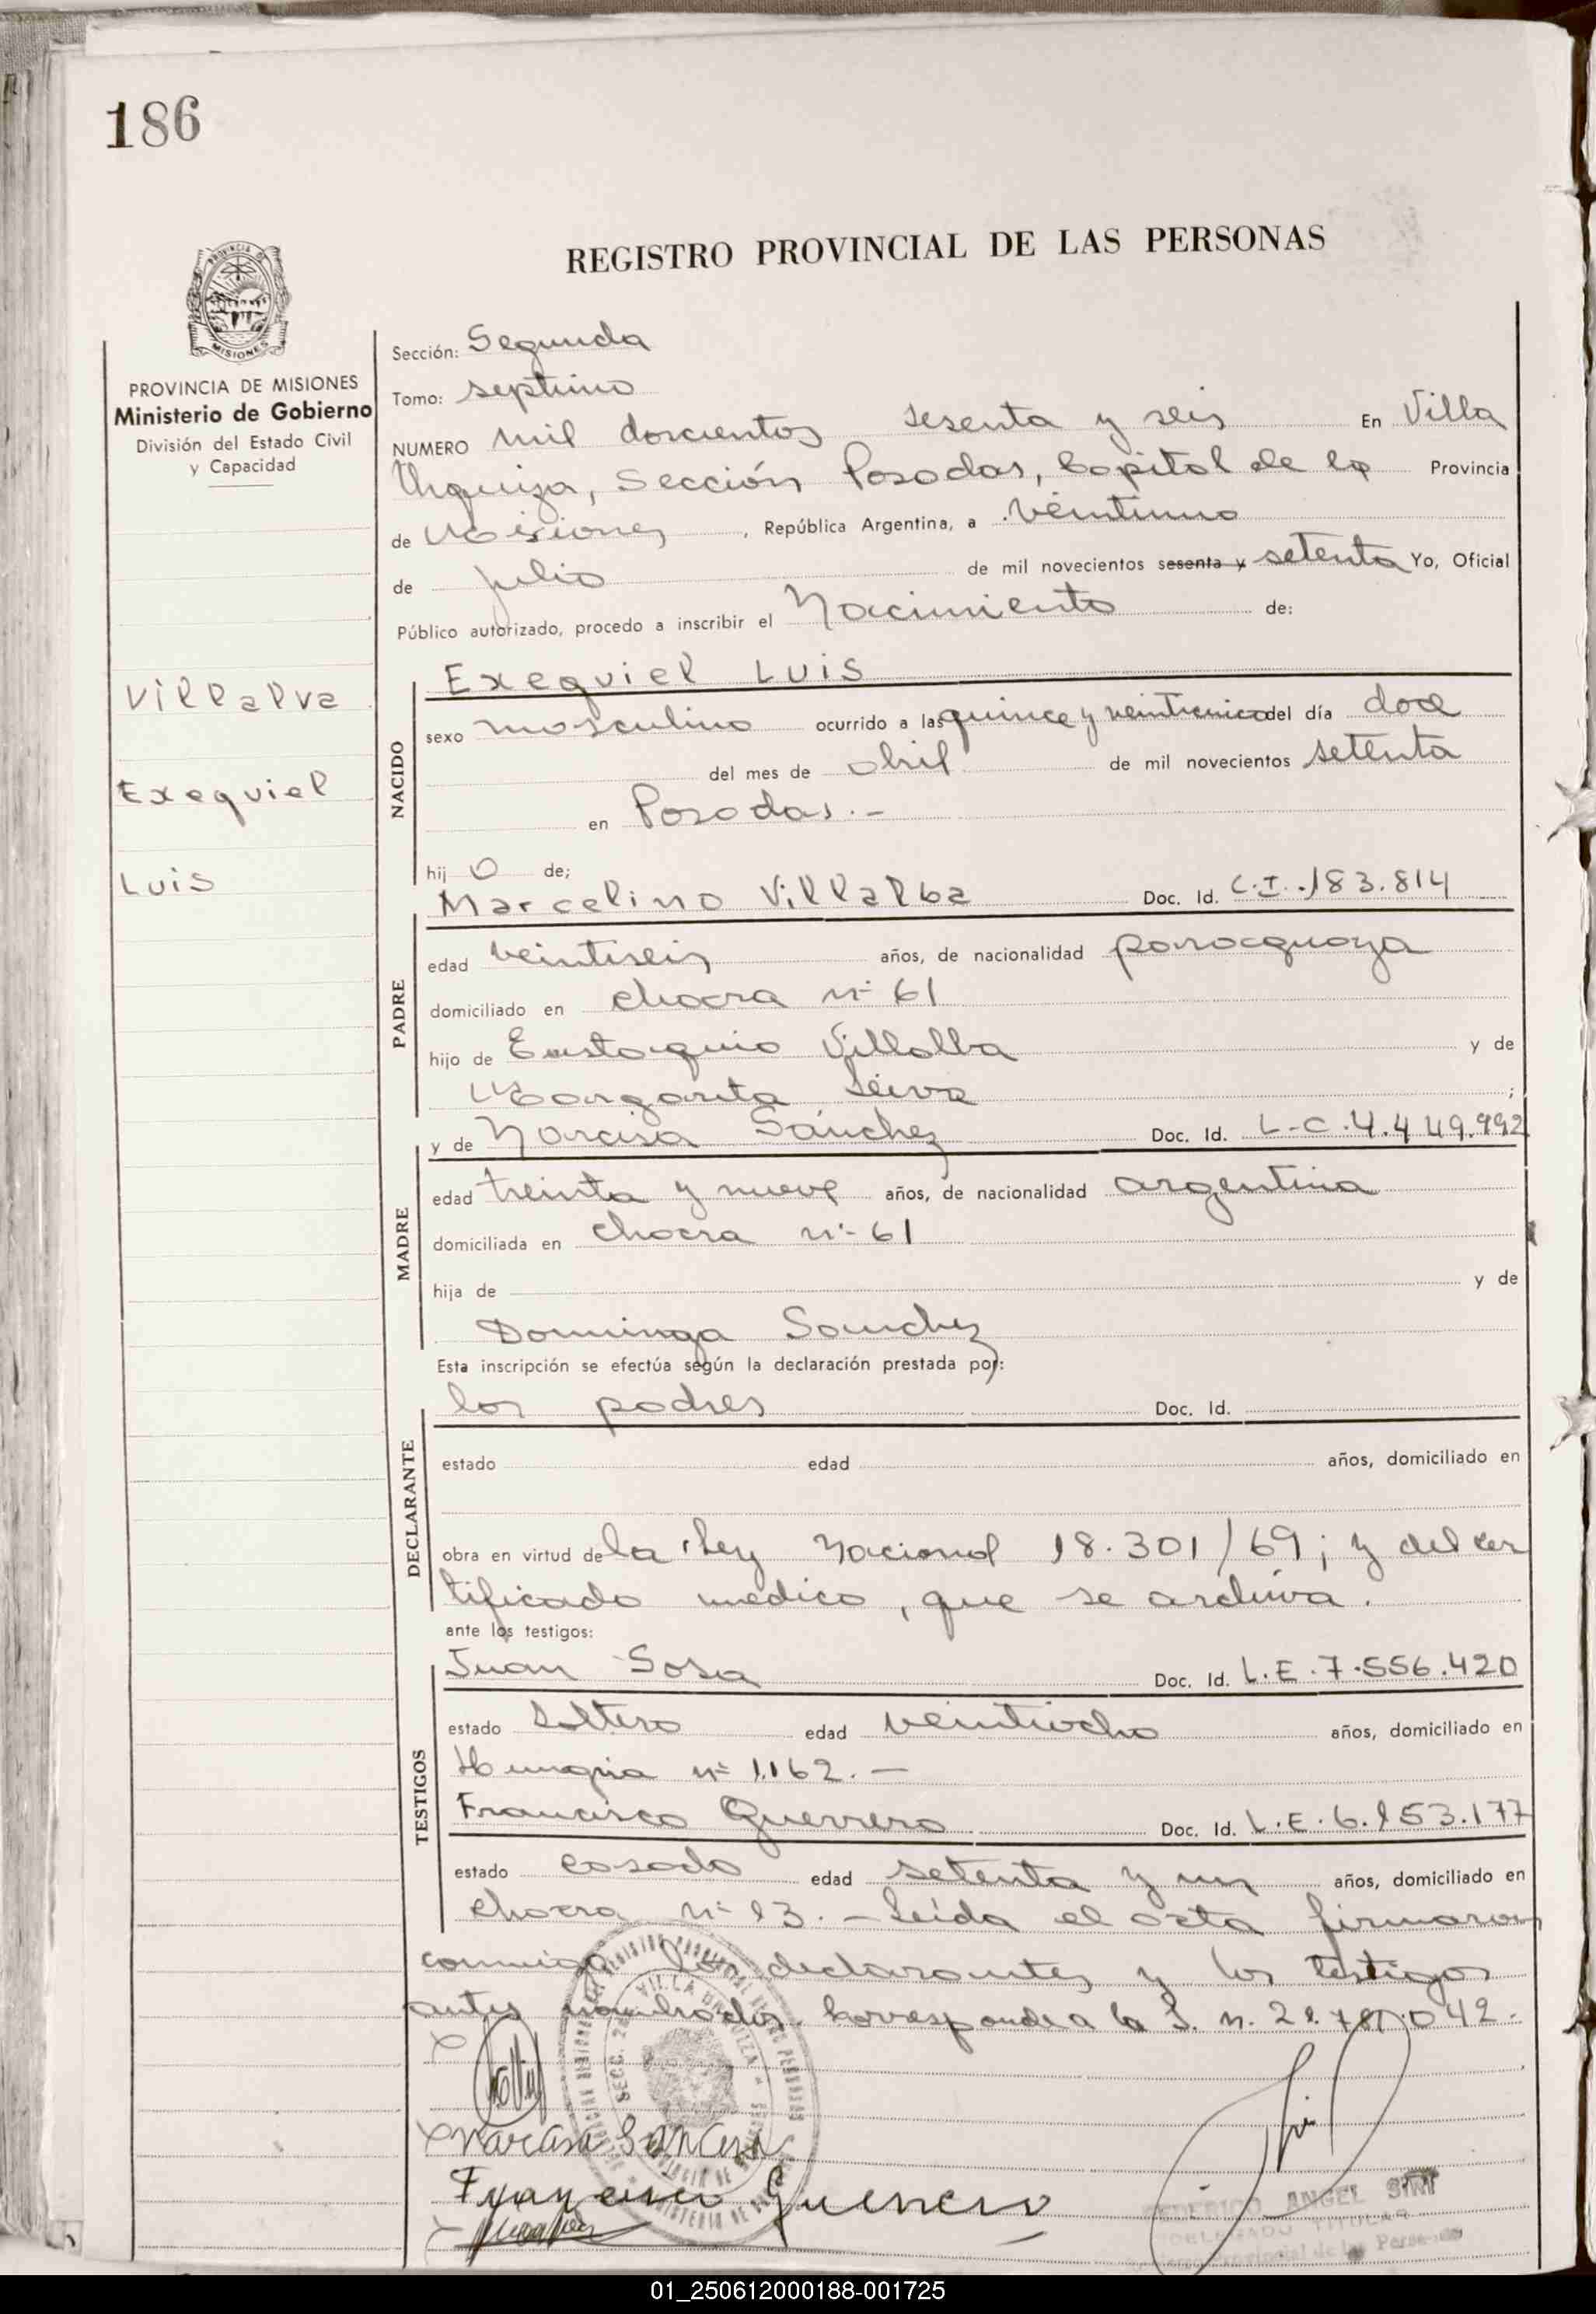 186
REGISTRO PROVINCIAL DE LAS PERSONAS
PROVINCIA
MISIONES
PROVINCIA DE MISIONES
Ministerio de Gobierno
División del Estado Civil
y Capacidad
Villalva
Exequiel
Luis
Sección: Segunda
Tomo: septimo
NUMERO mil doscientos sesenta y seis En Villa
Urquiza, Sección Posadas, Capital de la Provincia
de Misiones, República Argentina, a veintiuno
de julio de mil novecientos sesenta y setenta Yo, Oficial
Público autorizado, procedo a inscribir el Nacimiento de:
NACIDO
Exequiel Luis
sexo masculino ocurrido a las quince y veinticinco del día doce
del mes de abril de mil novecientos setenta
en Posadas.-
hij o de;
PADRE
Marcelino Villalba Doc. Id. C.I.183.814
edad veintiseis años, de nacionalidad paraguaya
domiciliado en chacra nº 61
hijo de Eustaquio Villalba y de
Margarita Leiva ;
MADRE
y de Narcisa Sánchez Doc. Id. L-C.4.449.992
edad treinta y nueve años, de nacionalidad argentina
domiciliada en chacra nº 61
hija de y de
Dominga Sanchez
Esta inscripción se efectúa según la declaración prestada por:
DECLARANTE
los padres Doc. Id.
estado edad años, domiciliado en
obra en virtud de la ley Nacional 18.301/69; y del cer
tificado medico, que se archiva.
ante los testigos:
TESTIGOS
Juan Sosa Doc. Id. L.E.7.556.420
estado soltero edad veintiocho años, domiciliado en
Hungria nº 1.162.-
Francisco Guerrero Doc. Id. L.E.6.153.177
estado casado edad setenta y un años, domiciliado en
chacra nº 13.- Leída el acta firmaron
conmigo los declarantes y los testigos
antes nombrados. Corresponde a la L. n. 21.
SECC. 2a VILLA URQUIZA
Narcisa Sanchez
Francisco Guerrero
FEDERICO ANGEL
DELEGADO TITULAR
Registro Provincial de las Personas
01_250612000188-001725